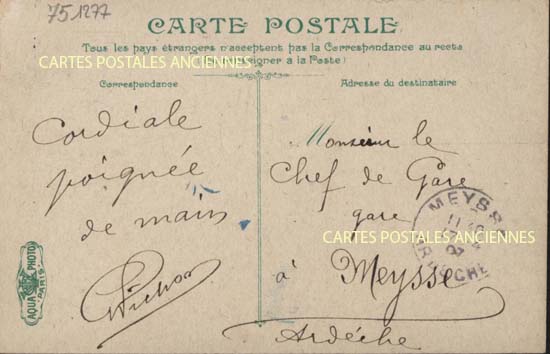 75 1277
CARTE POSTALE
Tous les pays étrangers n'acceptent pas la Correspondance au recto
seigner à la Poste)
CARTES POSTALES ANCIENNES
Correspondance
Adresse du destinataire
Cordiale
poignée
de main
Monsieur le
Chef de Gare
gare
à Meysse
Ardèche
MEYSSE
ARDÈCHE
CARTES POSTALES ANCIENNES
AQUA PHOTO
PARIS